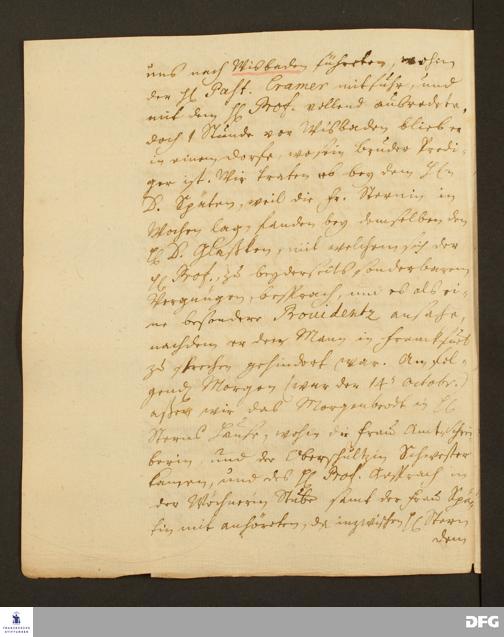 uns nach Wisbaden führeten, wohin
der H. Past. Cramer mitfuhr, und
mit dem H. Prof. vollend ausredete,
doch 1 Stunde vor Wisbaden blieb er
in einem dorfe, wo sein bruder Predi-
ger ist. Wir traten ab bey dem H.
D. Späten, weil die Fr. Sternin in
Wochen lag, fanden bey demselben den
H. D. mit welchem sich der
H. Prof. zu beyderseits sonderbarem
Vergnügen, besprach, und es als ei-
ne besondere Providentz ansahe,
nachdem er den Mann in Franckfurt
zu sprechen gehindert war. Am fol-
gend. Morgen (war der 14 Octobr.)
aßen wir das Morgenbrodt in H.
Sterns Hause, wohin die Frau Amtschrei-
berin, und der Oberschultzin Schwester
kamen, und des H. Prof. Ansprach in
der Wöchnerin Stube samt der Frau Spä-
tin mit anhöreten, da inzwischen H. Stern
dem
FRANCKESCHE STIFTUNGEN
DFG